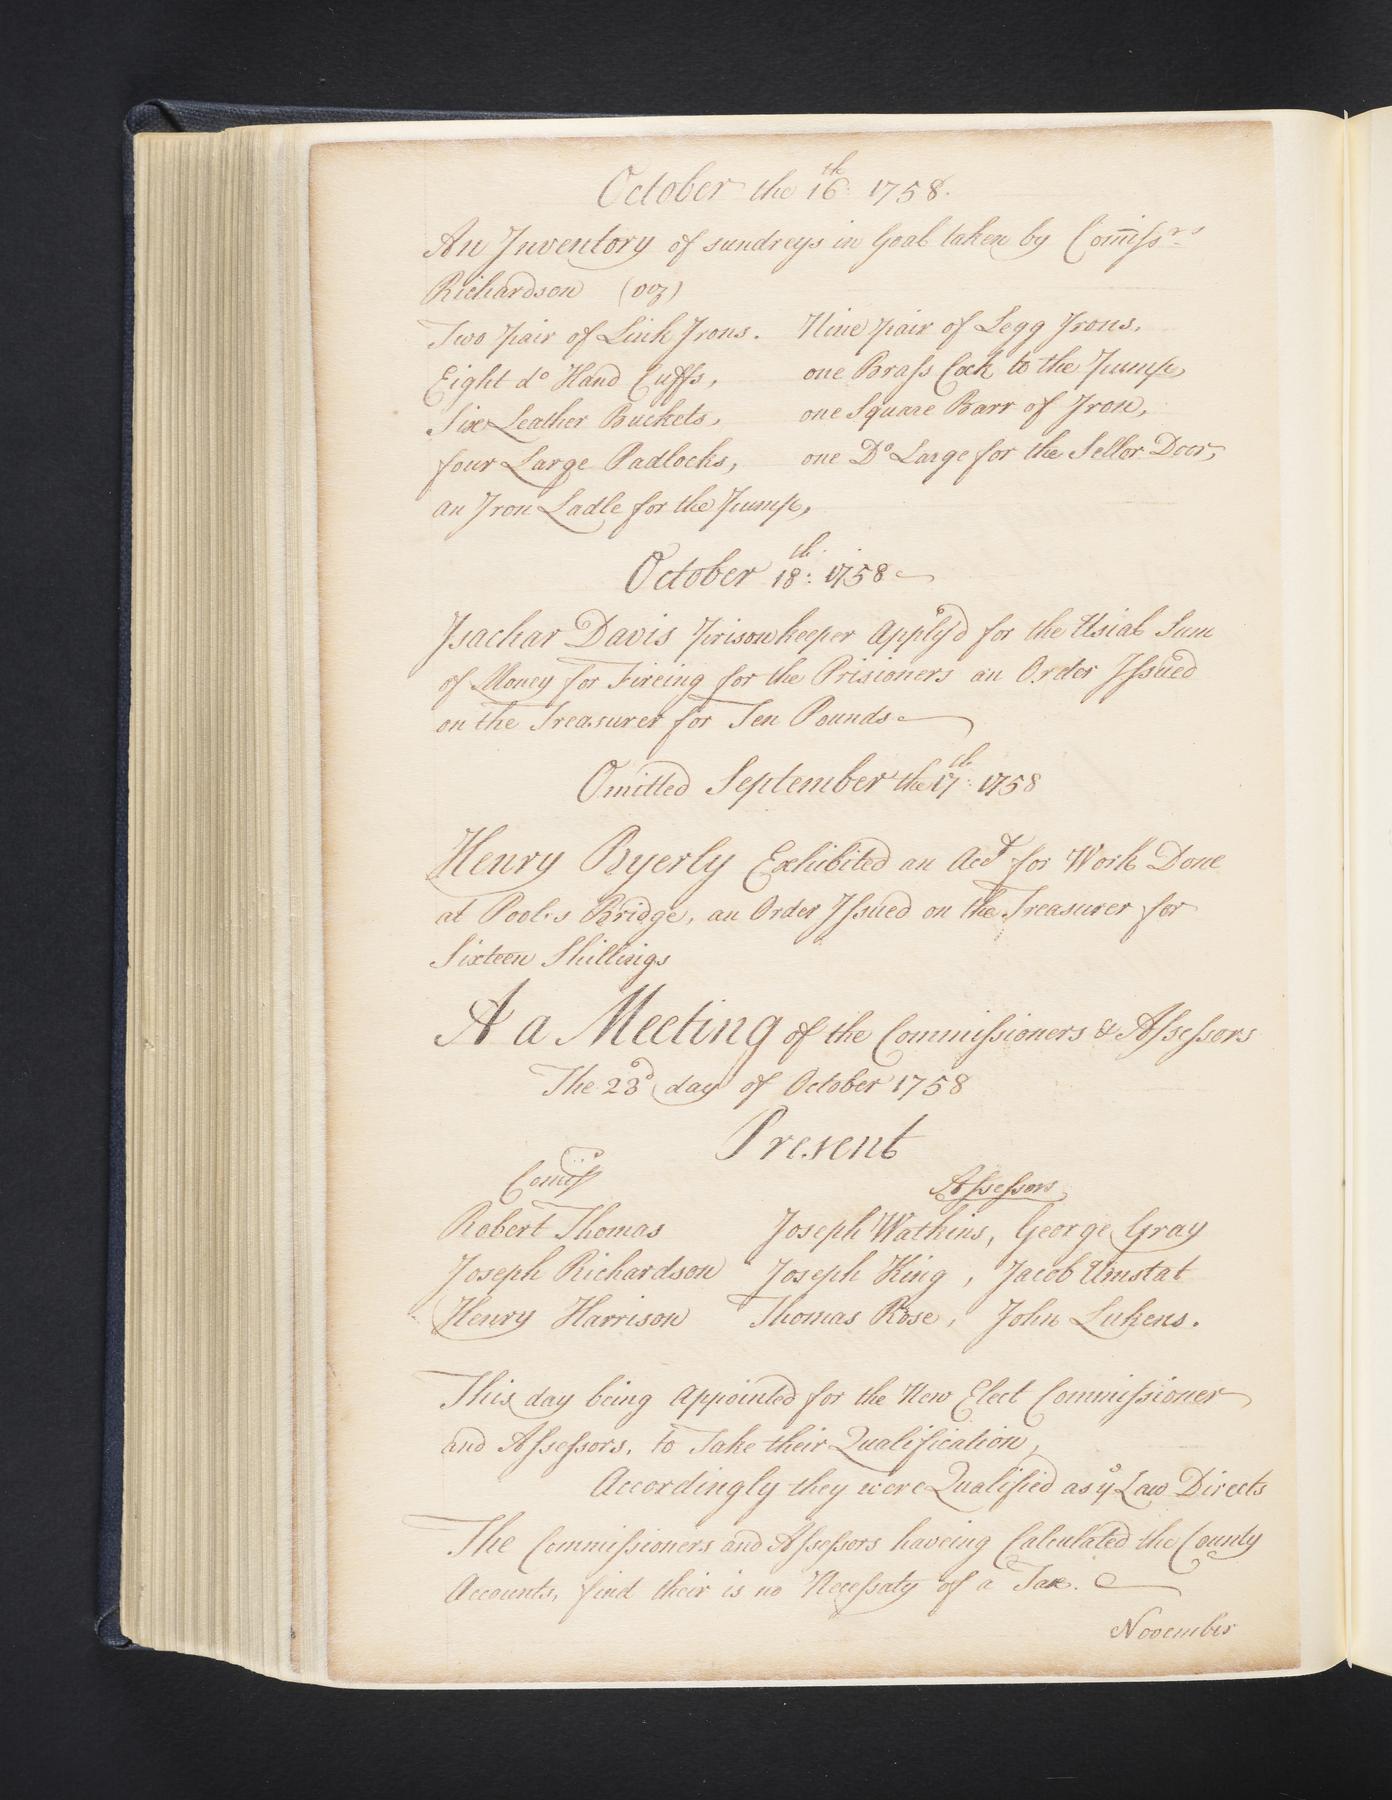 October the 16th: 1758.
An Inventory of sundreys in Goal taken by Comissrs
Richardson (viz)
Two pair of Link Irons. Nine pair of Legg Irons,
Eight do Hand Cuffs, one Brass Cock to the Pump,
Six Leather Buckets, one Square Barr of Iron,
four Large Padlocks, one Do Large for the Sellor Door,
an Iron Ladle for the Pump,
October 18th: 1758
Isachar Davis prisonkeeper Apply'd for the Usial Sum
of Money for Fireing for the Prisioners an Order Issued
on the Treasurer for Ten Pounds
Omitted September the 17th: 1758
Henry Byerly Exhibited an Acct for Work Done
at Pools Bridge, an Order Issued on the Treasurer for
Sixteen Shillings
At a Meeting of the Commissioners & Assessors
The 23d day of October 1758
Present
Comiss Assessors
Robert Thomas Joseph Watkins, George Gray
Joseph Richardson Joseph King, Jacob Umstat
Henry Harrison Thomas Rose, John Lukens.
This day being Appointed for the New Elect Commissioner
and Assessors, to Take their Qualification,
Accordingly they were Qualified as ye Law Directs
The Commissioners and Assessors haveing Calculated the County
Accounts, find their is no Necessaty of a Tax.
November